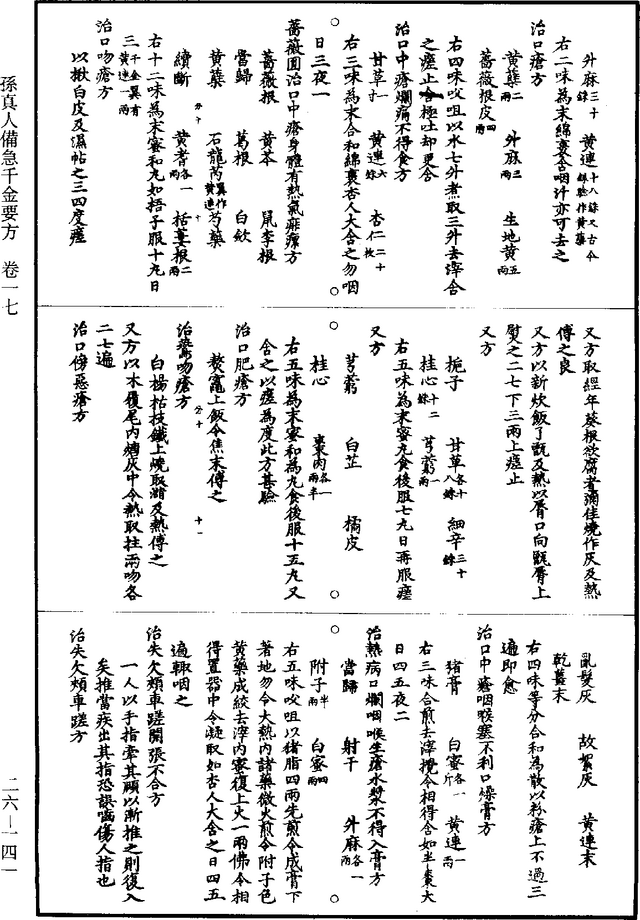 孫真人備急千金要方　卷一七
二六—一四一
外麻三十銖　黄連十八銖又古今録驗作黄蘗
右二味為末綿裹含咽汁亦可去之
治口瘡方
黄蘗二兩　外麻三兩　生地黄五兩
薔薇根皮四兩
右四味㕮咀以水七升煮取三升去滓含
之瘥止含極吐却更含
治口中瘡爛痛不得食方
甘草一寸　黄連六銖　杏仁二十枚
右三味為末合和綿裹杏人大含之勿咽
日三夜一
薔薇圓治口中瘡身體有熱氣痱瘰方
薔薇根　黄芩　鼠李根
當歸　葛根　白斂
黄蘗　石龍芮異作黄連　芍藥
續斷　黄耆各一兩　栝蔞根二兩
右十二味為末蜜和丸如梧子服十丸日
三千金異有黄連一兩
治口吻瘡方
以楸白皮及濕帖之三四度瘥
又方取經年葵根欲腐者彌佳燒作灰及熱
傅之良
又方以新炊飯了甑及熱以脣口向甑脣上
熨之二七下三兩上瘥止
又方
梔子　甘草各十八銖　細辛三十銖
桂心十二銖　芎藭一兩
右五味為末蜜丸食後服七丸日再服瘥
又方
芎藭　白芷　橘皮
桂心　棗肉各一兩半
右五味為末蜜和為丸食後服十五丸又
含之以瘥為度此方甚驗
治口肥瘡方
熬竈上飯令焦末傅之
治鷰吻瘡方
白楊枯技鐵上燒取瀋及熱傅之
又方以木履尾内煻灰中令熱取拄兩吻各
二七遍
治口傍惡瘡方
亂髮灰　故絮灰　黄連末
乾薑末
右四味等分合和為散以粉瘡上不過三
遍即愈
治口中瘡咽喉塞不利口燥膏方
猪膏　白蜜各一斤　黄連一兩
右三味合煎去滓攪令相得含如半棗大
日四五夜二
治熱病口爛咽喉生瘡水漿不得入膏方
當歸　射干　外麻各一兩
附子半兩　白蜜四兩
右五味㕮咀以猪脂四兩先煎令成膏下
著地勿令大熱内諸藥微火煎令附子色
黄藥成絞去滓内蜜復上火一兩佛令相
得置器中令凝取如杏人大含之日四五
遍輙咽之
治失欠頰車蹉開張不合方
一人以手指牽其頤以漸推之則復入
矣推當疾出其指恐誤嚙傷人指也
治失欠頰車蹉方